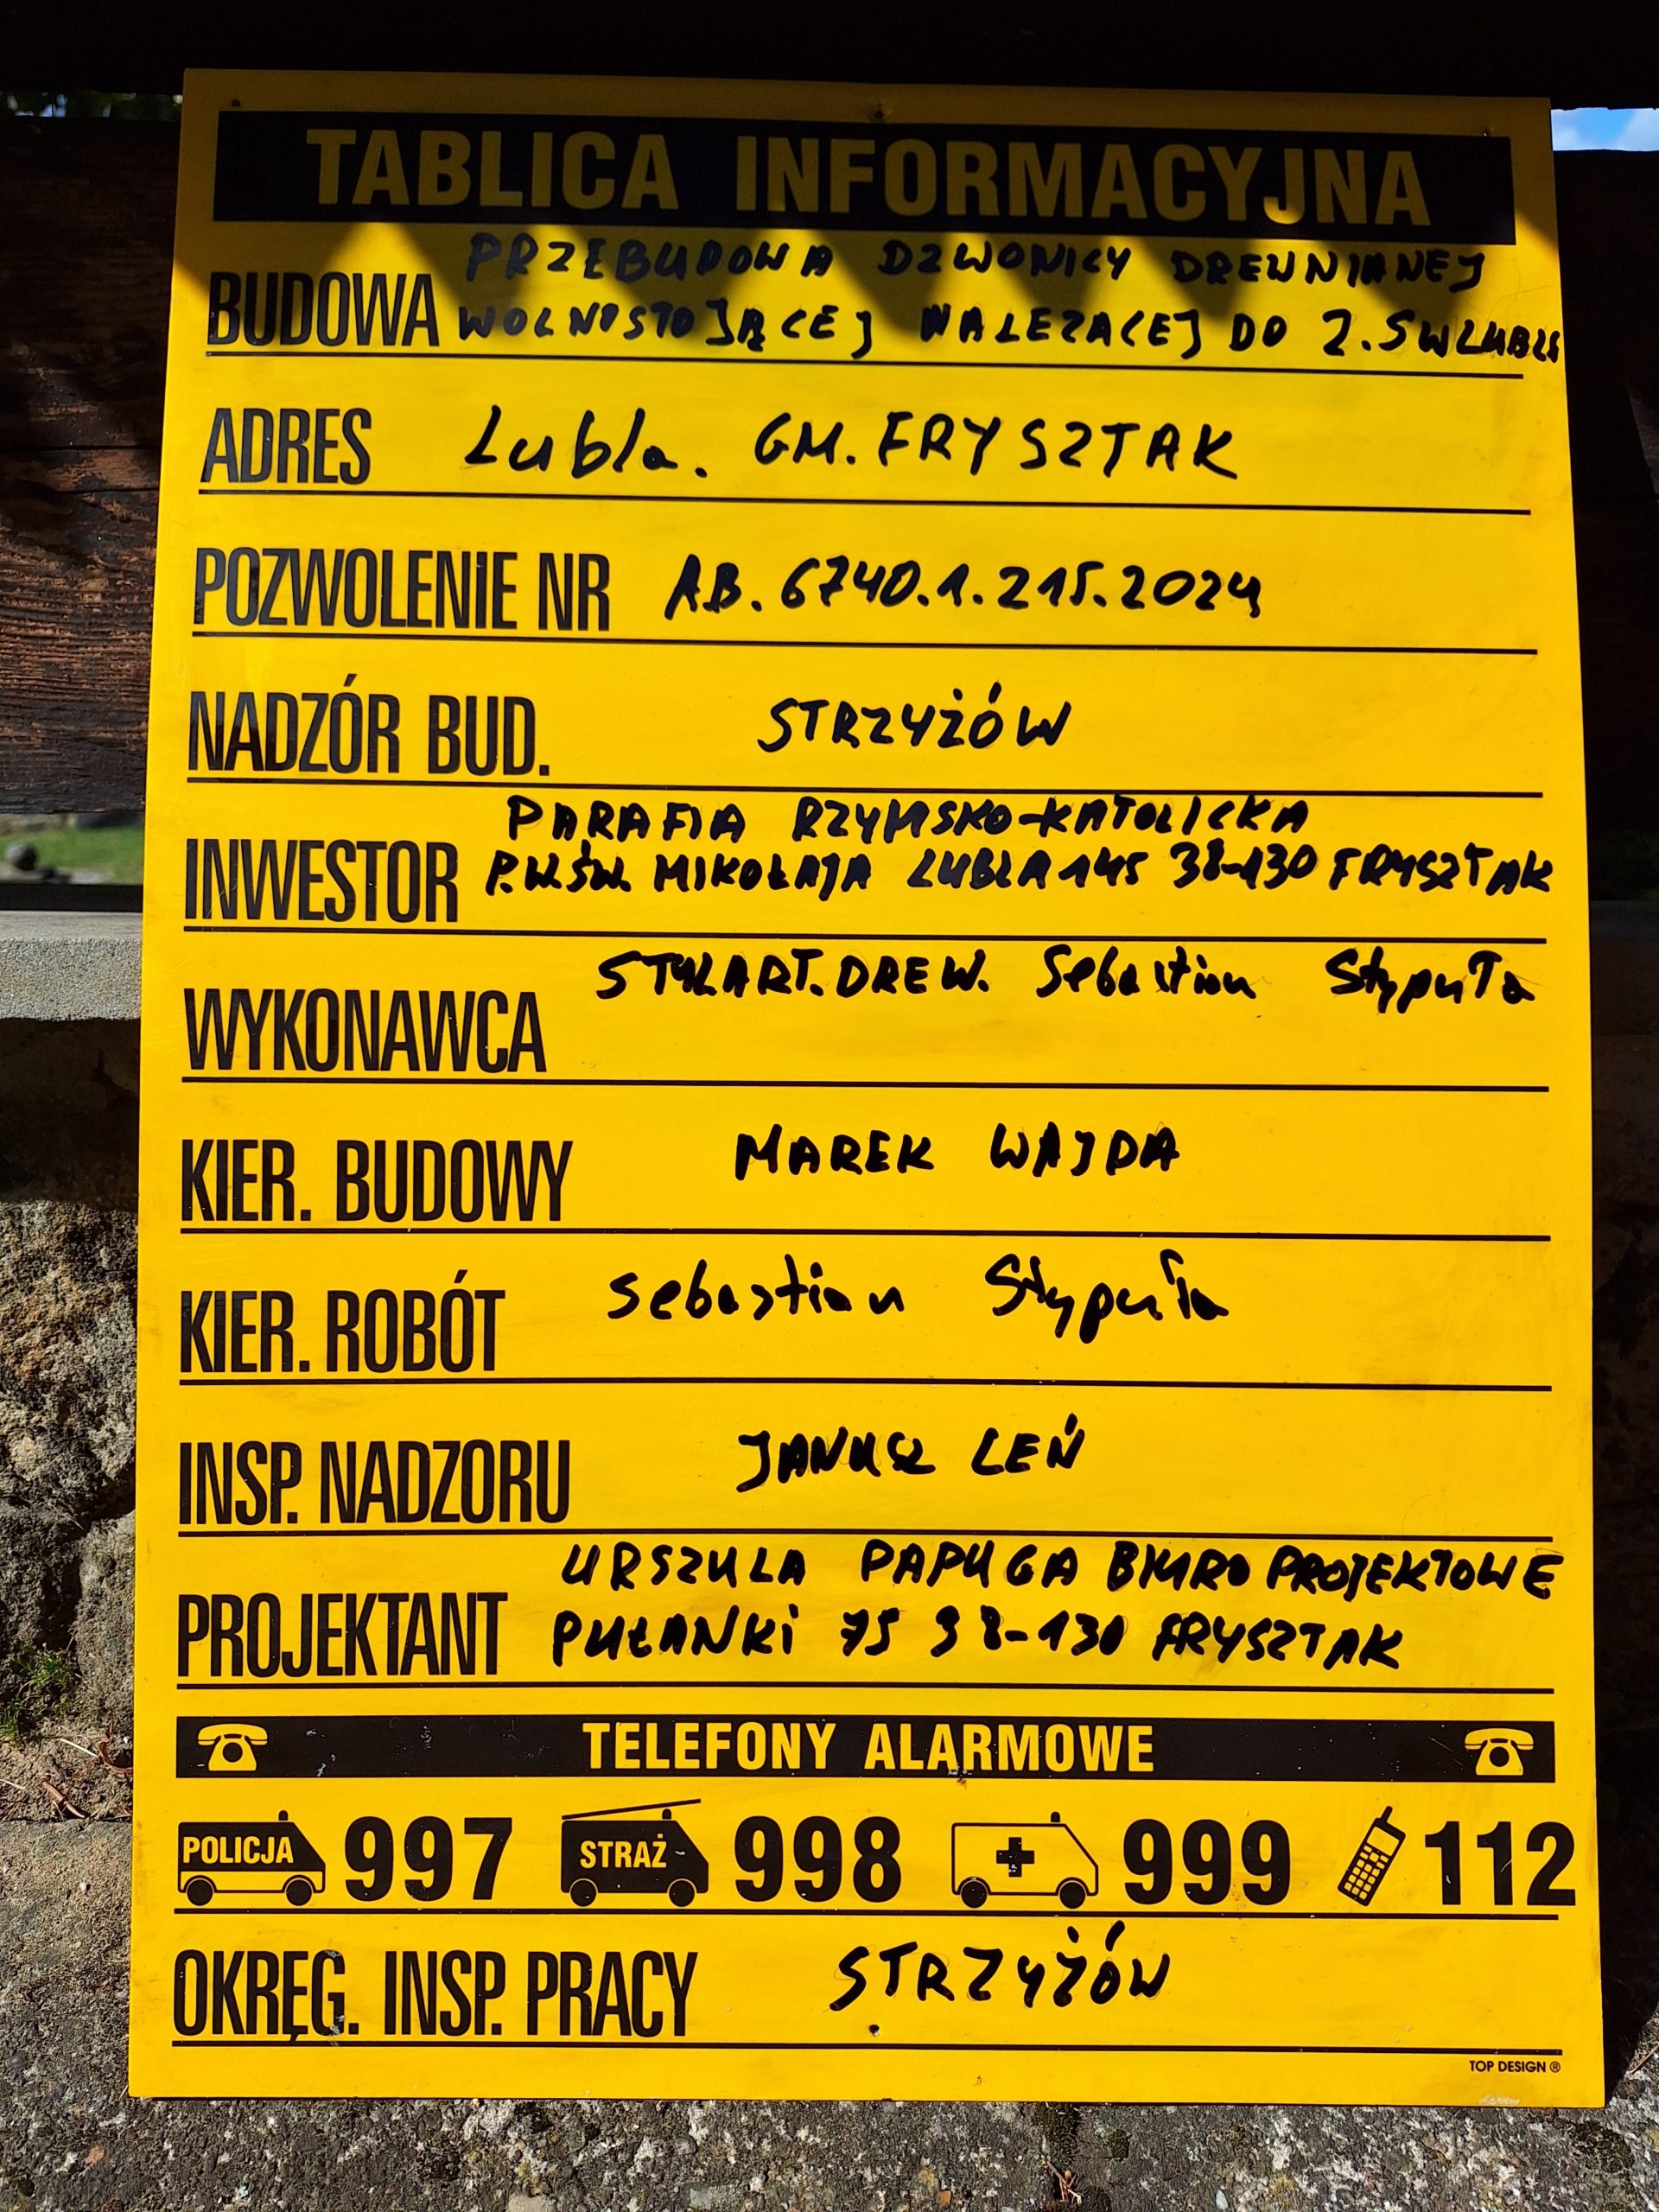 TABLICA INFORMACYJNA
PRZEBUDOWA DZWONICY DREWNIANEJ
BUDOWA WOLNOSTOJĄCEJ NALEZACEJ DO Z.SW LUBLI
ADRES Lubla. GM. FRYSZTAK
POZWOLENIE NR AB.6740.1.215.2024
NADZÓR BUD. STRZYŻÓW
PARAFIA RZYMSKO-KATOLICKA
INWESTOR P.W.ŚW. MIKOŁAJA LUBLA 145 38-130 FRYSZTAK
STYLART.DREW. Sebastian Stypuła
WYKONAWCA
KIER. BUDOWY MAREK WAJDA
KIER. ROBÓT Sebastian Stypuła
INSP. NADZORU JANUSZ LEŃ
URSZULA PAPUGA BIURO PROJEKTOWE
PROJEKTANT PUŁANKI 75 38-130 FRYSZTAK
TELEFONY ALARMOWE
POLICJA 997 STRAŻ 998 999 112
OKRĘG. INSP. PRACY STRZYŻÓW
TOP DESIGN ®